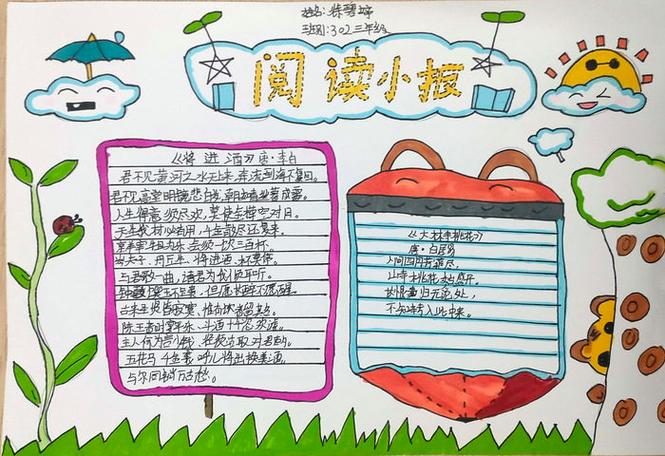 姓名:徐碧婷
班别:302三年级
阅读小报
《将进酒》唐·李白
君不见黄河之水天上来,奔流到海不复回。
君不见高堂明镜悲白发,朝如青丝暮成雪。
人生得意须尽欢,莫使金樽空对月。
天生我材必有用,千金散尽还复来。
烹羊宰牛且为乐,会须一饮三百杯。
岑夫子,丹丘生,将进酒,杯莫停。
与君歌一曲,请君为我倾耳听。
钟鼓馔玉不足贵,但愿长醉不愿醒。
古来圣贤皆寂寞,惟有饮者留其名。
陈王昔时宴平乐,斗酒十千恣欢谑。
主人何为言少钱,径须沽取对君酌。
五花马,千金裘,呼儿将出换美酒,
与尔同销万古愁。
《大林寺桃花》
唐·白居易
人间四月芳菲尽,
山寺桃花始盛开。
长恨春归无觅处,
不知转入此中来。